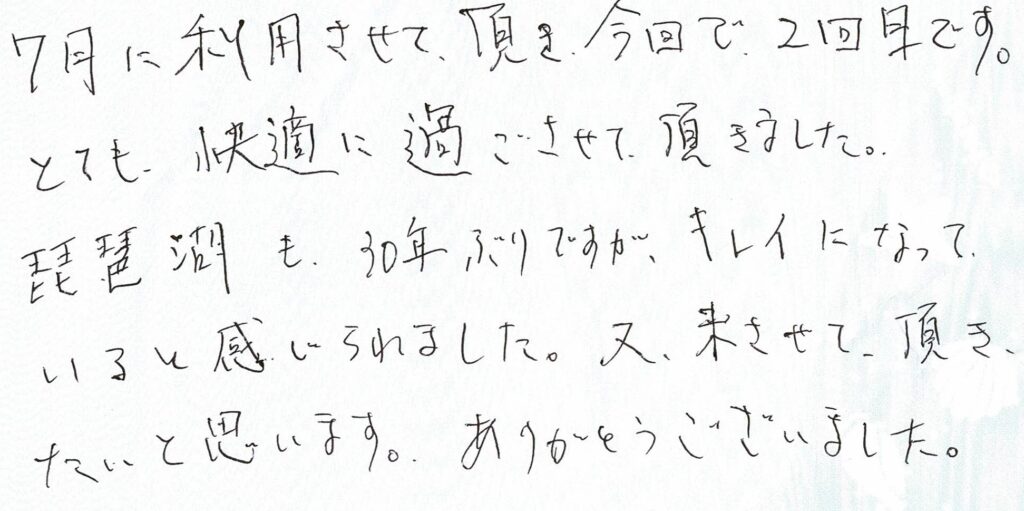 7月に利用させて、頂き、今回で、2回目です。
とても、快適に過ごさせて、頂きました。
琵琶湖も、30年ぶりですが、キレイになって、
いると感じられました。又、来させて、頂き、
たいと思います。ありがとうございました。